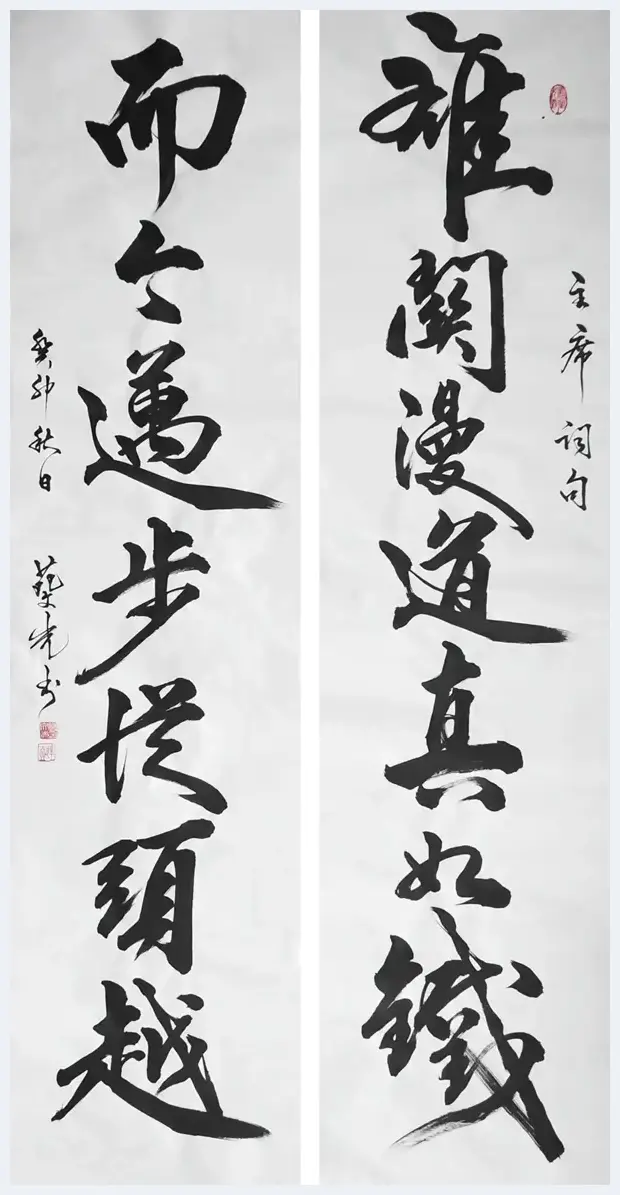 主席詞句
雄關漫道真如鐵
而今邁步從頭越
癸卯秋日 蔡光书